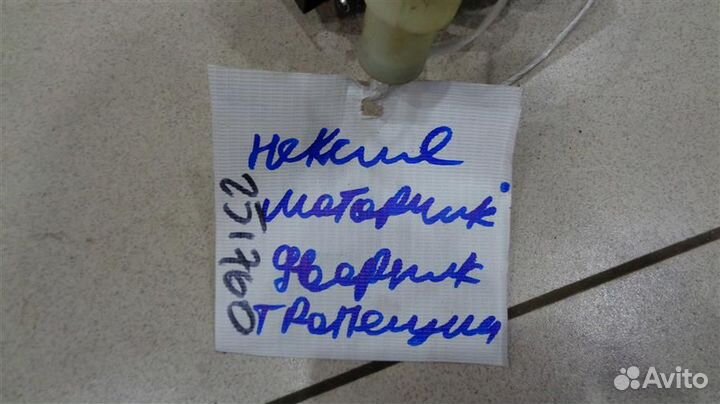 нексия
моторчик
дворник
трапеции
251760
Avito